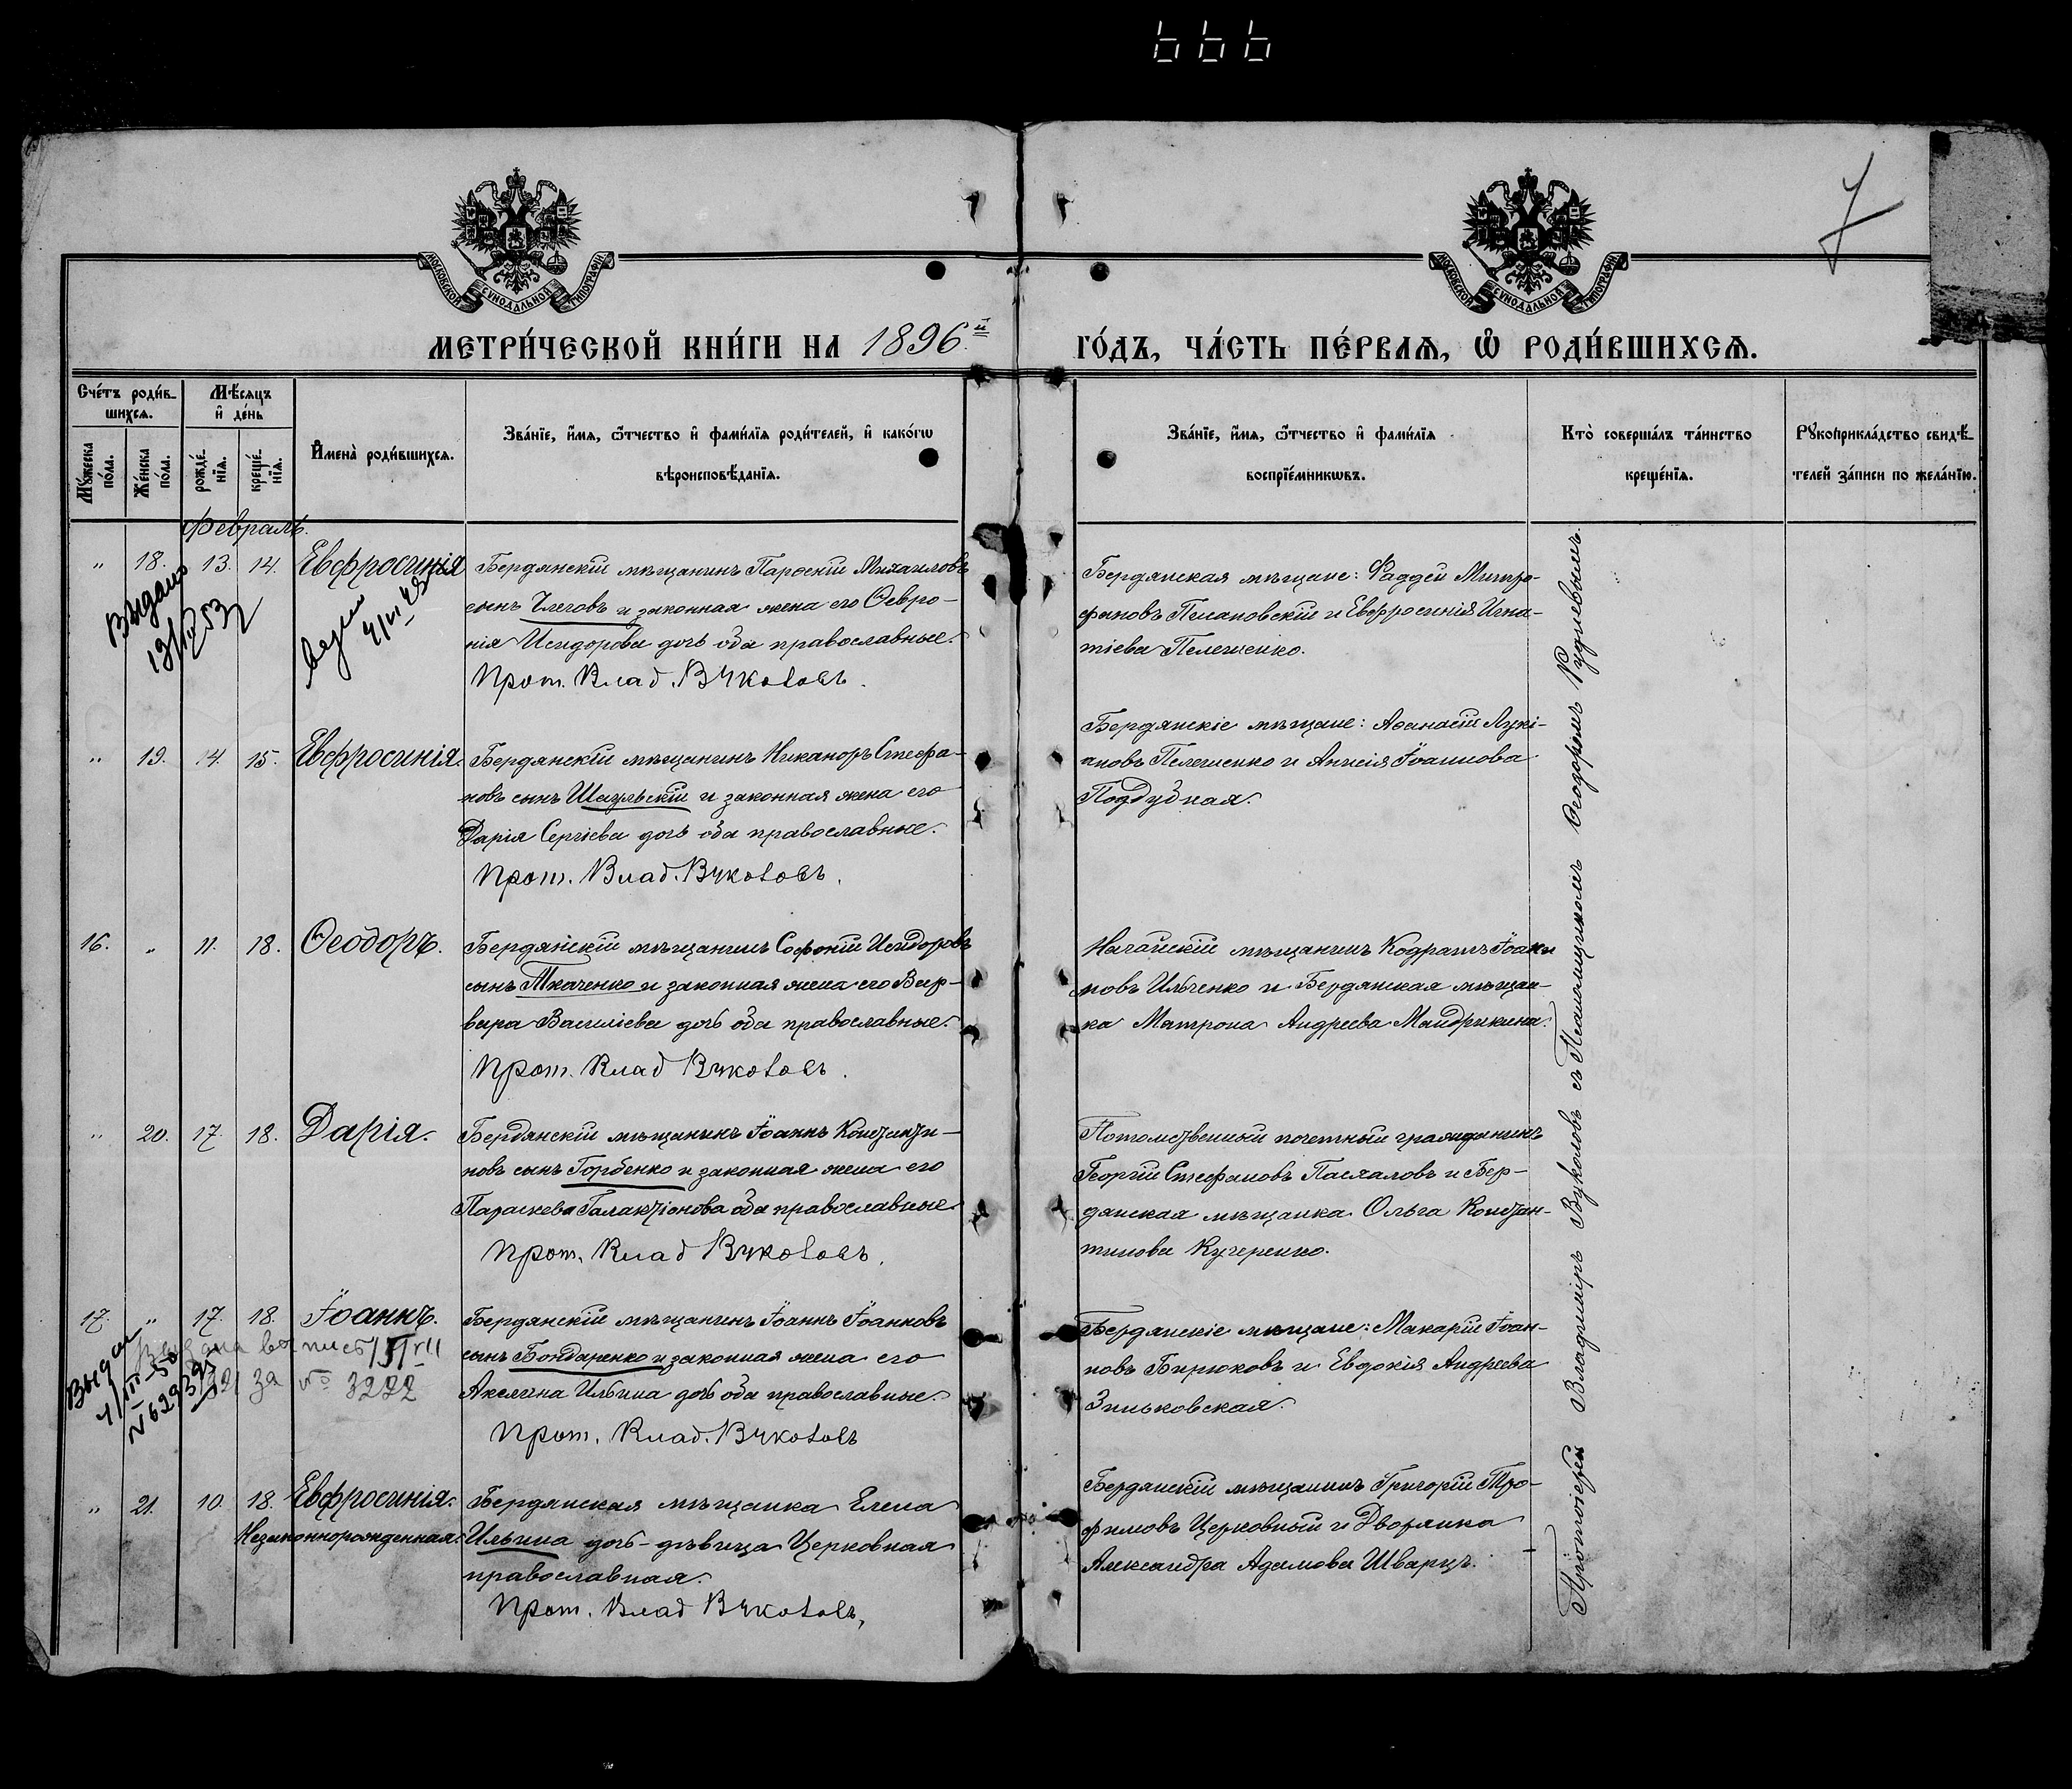 666
7
МОСКОВСКОЙ СѴНОДАЛЬНОЙ ТИПОГРАФІИ
МОСКОВСКОЙ СѴНОДАЛЬНОЙ ТИПОГРАФІИ
МЕТРИ́ЧЕСКОЙ КНИ́ГИ НА 1896.й ГО́ДЪ, ЧА́СТЬ ПЕ́РВАЯ, Ѽ РОДИ́ВШИХСЯ.
Сче́тъ роди́в-
шихся.
Мѣ́сяцъ
и де́нь
Мꙋ́жеска по́ла.
Же́нска по́ла.
рожде́-
нїя.
креще́-
нїя.
И҆мена̀ роди́вшихся.
Зва́нїе, и҆́мя, ѻ҆́тчество и҆ фами́лїя роди́телей, и҆ како́гѡ
вѣроисповѣ́данїя.
Зва́нїе, и҆́мя, ѻ҆́тчество и҆ фами́лїя
воспрїе́мникѡвъ.
Кто̀ соверша́лъ та́инство
креще́нїя.
Рꙋкоприкла́дство свидѣ́-
телей за́писи по жела́нїю.
Февраль.
" 18. 13. 14. Евфросинія
Бердянскій мѣщанинъ Михаиловъ
сынъ и законная жена его Ѳевро-
нія Исидорова дочь оба православные.
Прот. Влад. Вуколовъ.
Бердянская мѣщане: Фаддей Митро-
фановъ и Евфросинія Игна-
тіева Пелешенко.
Выдано
" 19. 14. 15. Евфросинія.
Бердянскій мѣщанинъ Никаноръ Стефа-
новъ сынъ Шаульскій и законная жена его
Дарія Сергіева дочь оба православные.
Прот. Влад. Вуколовъ.
Бердянскіе мѣщане: Аѳанасій Лукі-
ановъ Пелешенко и Анисія Іоаннова
Поддубная.
16. " 11. 18. Ѳеодоръ.
Бердянскій мѣщанинъ Софоній Исидоровъ
сынъ Ткаченко и законная жена его Вар-
вара Василіева дочь оба православные.
Прот. Влад Вуколовъ.
Ногайскій мѣщанинъ Кодратъ Іоан-
новъ Ильченко и Бердянская мѣщан-
ка Матрона Андреева Мандрикина.
" 20. 17. 18. Дарія.
Бердянскій мѣщанинъ Іоаннъ Константи-
новъ сынъ Горбенко и законная жена его
Параскева Галактіонова оба православные.
Прот. Влад Вуколовъ.
Потомственный почетный гражданинъ
Георгій Стефановъ Пасхаловъ и Бер-
дянская мѣщанка Ольга Констан-
тинова Кучеренко.
17. " 17. 18. Іоаннъ.
Бердянскій мѣщанинъ Іоаннъ Іоанновъ
сынъ Бондаренко и законная жена его
Акилина Ильина дочь оба православные.
Прот. Влад. Вуколовъ
Бердянскіе мѣщане: Макарій Іоан-
новъ Бирюковъ и Евдокія Андреева
Зиньковская.
за № 3222
" 21. 10. 18. Евфросинія.
Незаконнорожденная.
Бердянская мѣщанка Елена
Ильина дочь-дѣвица Церковная
православная.
Прот. Влад Вуколовъ,
Бердянскій мѣщанинъ Григорій Тро-
фимовъ Церковный и Дворянка
Александра Адамова Шварцъ.
Протоіерей Владиміръ Вуколовъ съ Псаломщикомъ Ѳеодоромъ